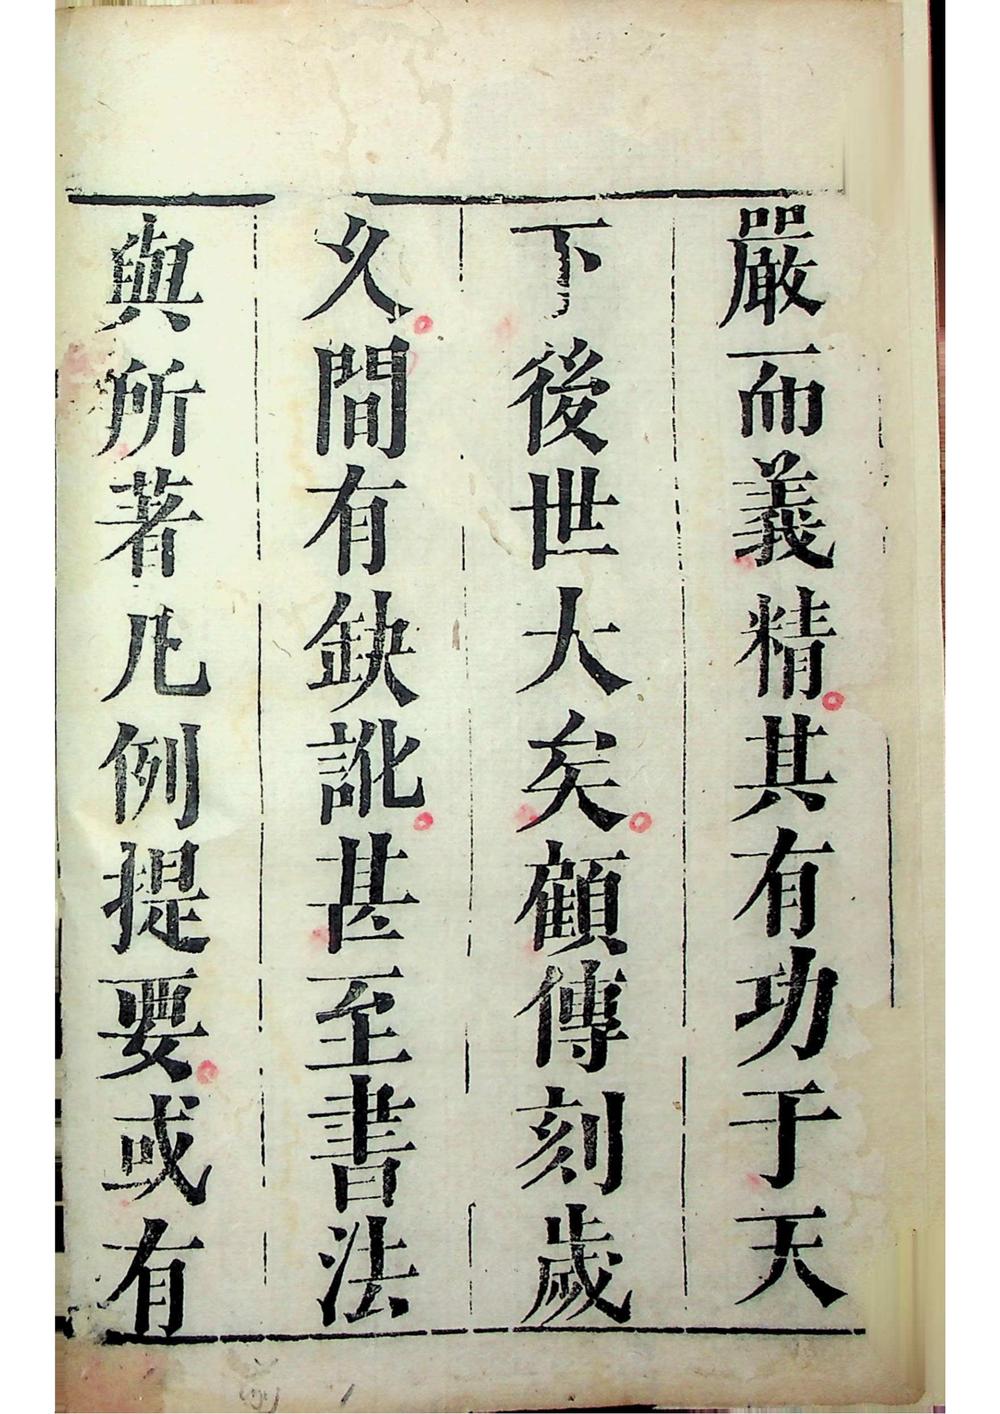 嚴而義精其有功于天
下後世大矣顧傳刻歲
久間有缺訛甚至書法
與所著凡例提要或有